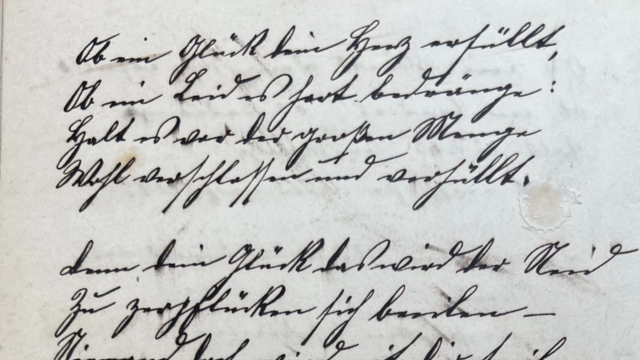 Ob ein Glück dein Herz erfüllt,
Ob ein Leid es hart bedränge:
Halt es vor der großen Menge
Wohl verschlossen und verhüllt.
Denn dein Glück das wird der Neid
Zu zerpflücken sich beeilen —
Niemand doch wird mit dir teilen